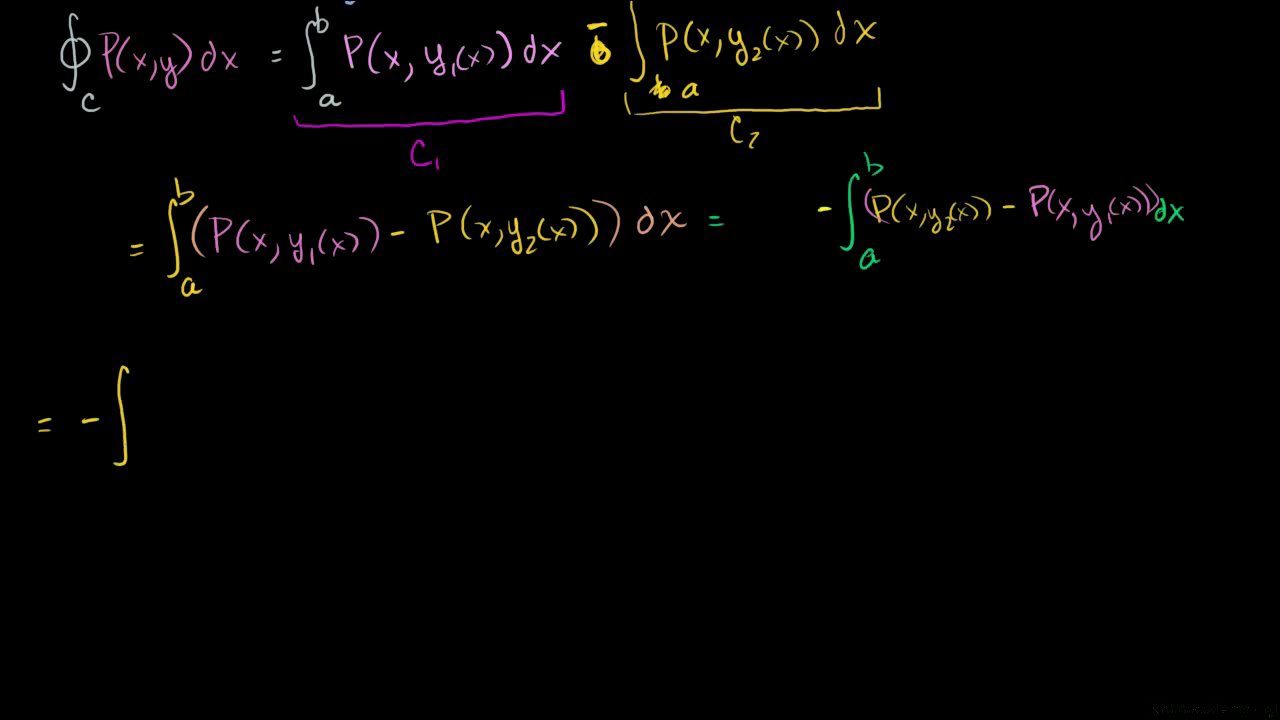 ∮_C P(x,y)dx = ∫_a^b P(x, y₁(x))dx - ∫_a P(x, y₂(x)) dx
C₁ C₂
= ∫_a^b (P(x, y₁(x)) - P(x, y₂(x))) dx = - ∫_a^b (P(x, y₂(x)) - P(x, y₁(x)))dx
= - ∫